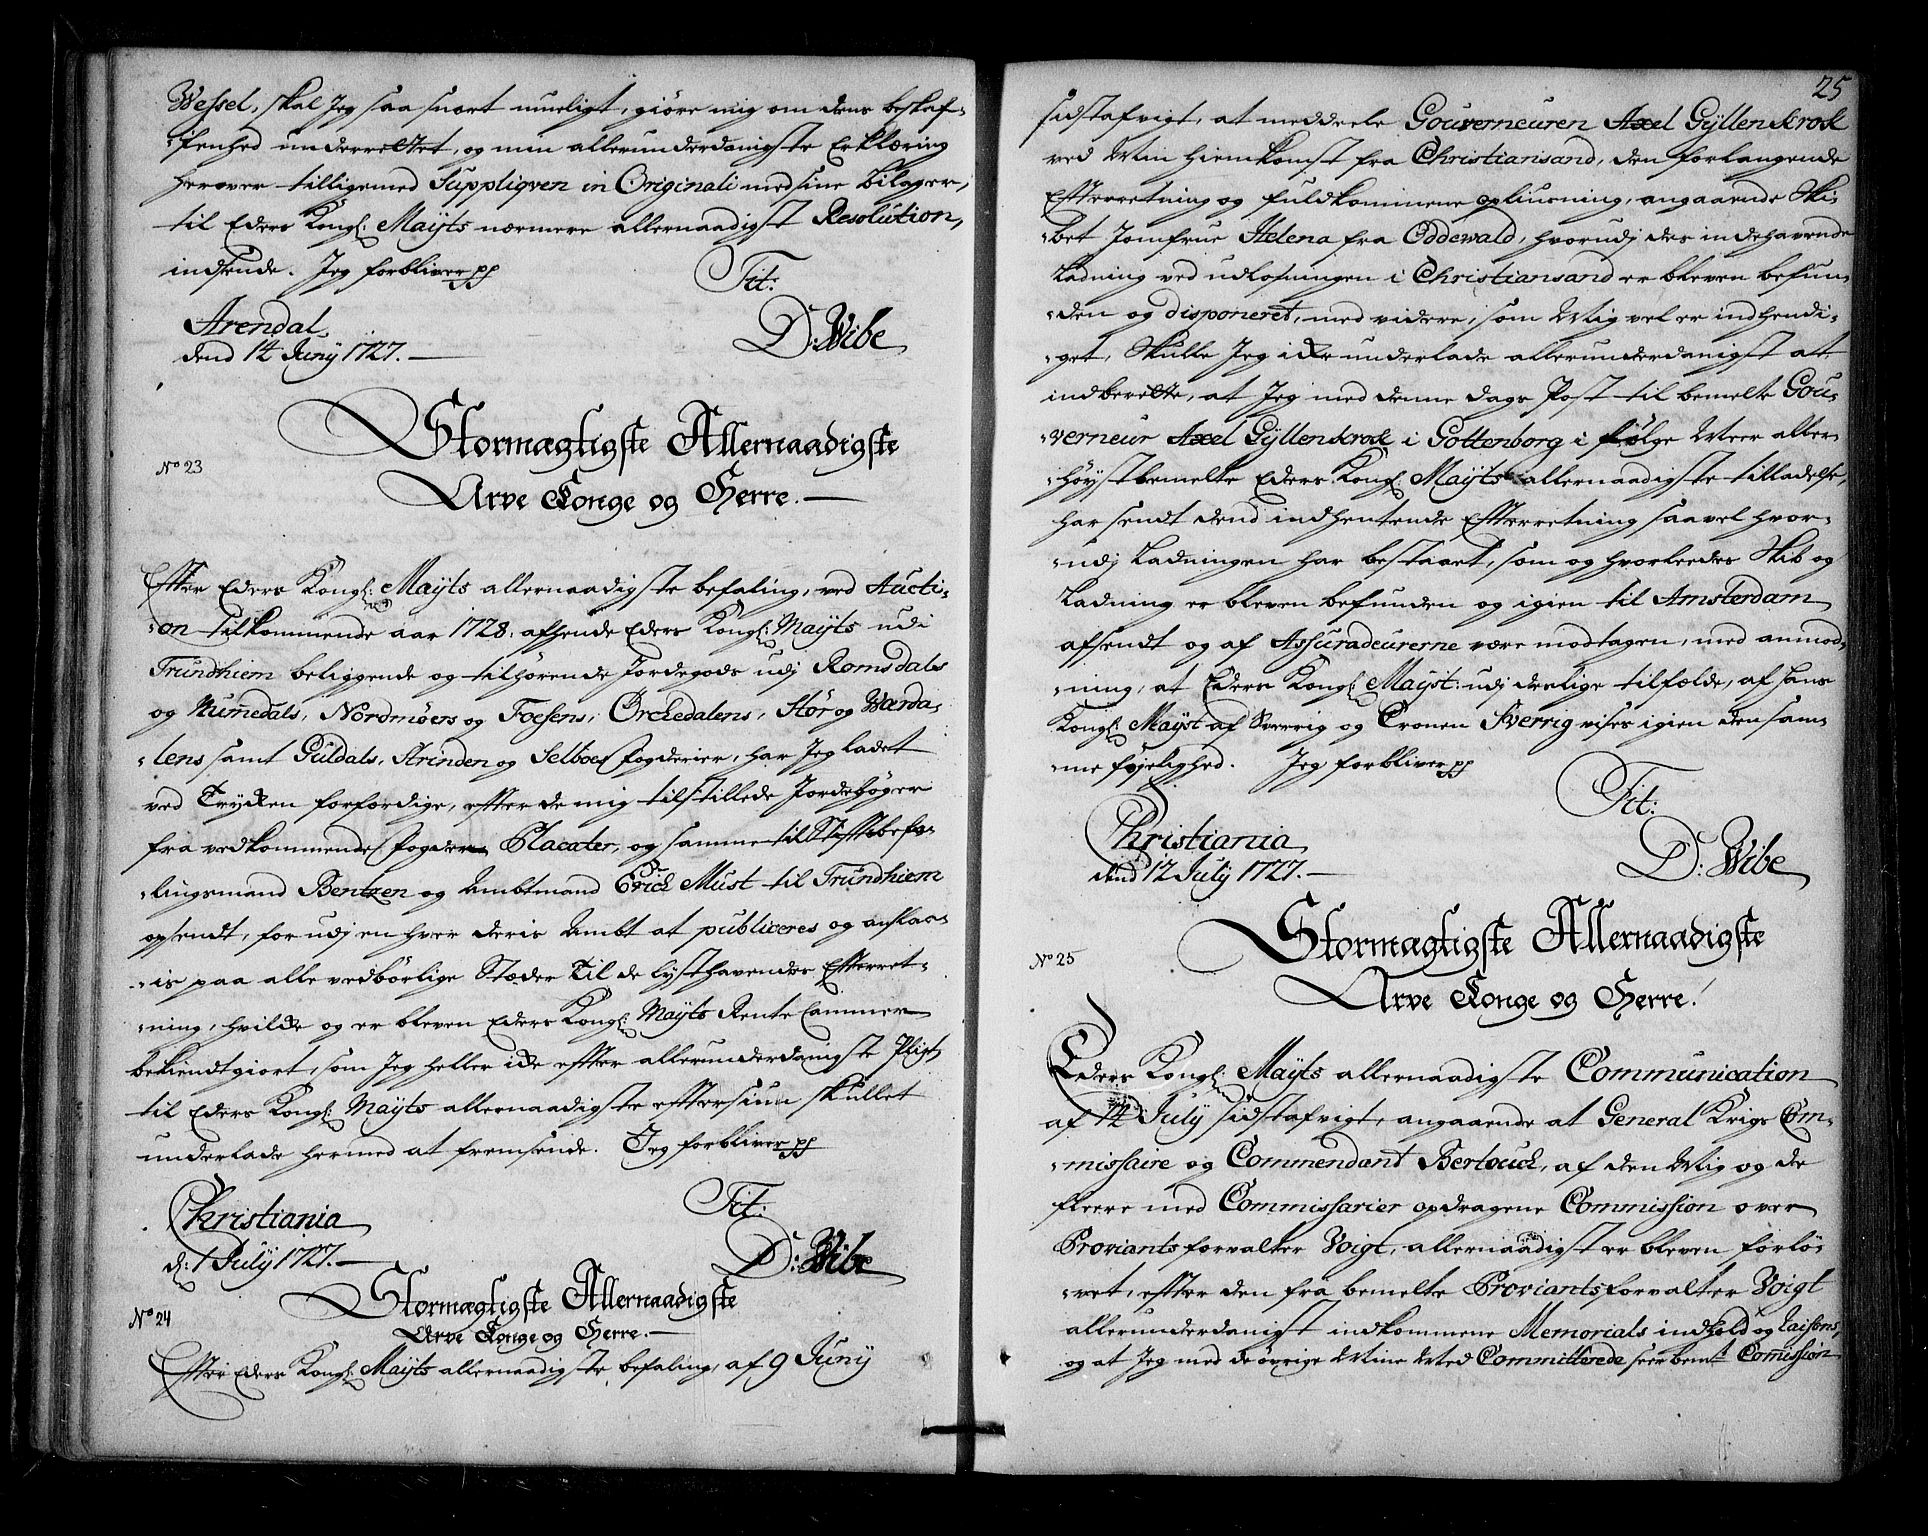 Wessel, skal Jeg saa snart mueligt, giöre mig om dens beskaf-
-fenhed underrettet, og min allerunderdanigste Erklæring
herover tilligemed Suppliqven in Originali med sine bilager,
til Eders Kongl: Mayts nærmere allernaadigst Resolution,
indsende. Jeg forbliver pp
Tit:
Arendal
dend 14 Juny 1727.
D: Wibe
No 23
Stormægtigste Allernaadigste
Arve Konge og Herre.
Efter Eders Kongl: Mayts allernaadigste befaling, ved Aucti-
-on tilkommende aar 1728. afhende Eders Kongl: Mayts udi
Trundhiem beliggende og tilhörende Jordegods udj Romsdals
og Numedals, Nordmøers og Foesens, Orckedalens, Stör og Værda-
-lens samt Guldals, Strinden og Selboes fogderier, har Jeg ladet
ved Trycken forfærdige, efter de mig tilstillede Jordebøger
fra vedkommende fogder Placater, og samme til Stiftsbefa-
-lingsmand Bentzen og Ambtmand Erich Must til Trundhiem
opsendt, for udj en hver deris Ambt at publiceres og anslaa-
-is paa alle vedbörlige Stæder til de lysthavendes Efterret-
-ning, hvilcke og er bleven Eders Kongl: Mayts Rente Cammer
bekiendtgiort, som Jeg heller icke efter allerunderdanigste Pligt
til Eders Kongl: Mayts allernaadigste eftersiun skullet
underlade hermed at fremsende. Jeg forbliver pp
Tit:
Christiania
d: 1 July 1727.
D: Wibe
No 24
Stormægtigste Allernaadigste
Arve Konge og Herre.
Efter Eders Kongl: Mayts allernaadigste befaling, af 9 Juny
25
sidstafvigt, at meddeele Gouverneuren Axel Gyllenkrok
ved Min Hiemkomst fra Christiansand, den forlangende
Efterretning og fuldkommene opliusning, angaaende Ski-
-bet Jomfrue Helena fra Oddewald, hvorudj des indehavende
Ladning ved udlosningen i Christiansand er bleven befun-
-den og disponeret, med videre, som Mig vel er indhendi-
-get, Skulle Jeg icke underlade allerunderdanigst at
indberette, at Jeg med denne dags Post til bemelte Gou-
-verneur Axel Gyllenkrok i Gottenborg i følge Meer aller-
-höystbemelte Eders Kongl: Mayts allernaadigste tilladelse,
har sendt dend indhentende Efterretning saavel hvor-
-udj Ladningen har bestaaet, som og hvorleedes Skib og
Ladning er bleven befunden og igien til Amsterdam
afsendt og af Assuradeurerne være modtagen, med anmod-
-ning, at Eders Kongl: Mayst: udj deslige tilfælde, af Hans
Kongl: Mayst af Sverrig og Cronen Sverrig vises igien den sam-
-me föyelighed. Jeg forbliver pp
Tit:
Christiania
dend 12 July 1727.
D: Wibe
No 25
Stormægtigste Allernaadigste
Arve Konge og Herre!
Eders Kongl: Mayts allernaadigste Communication
af 14 July sidstafvigt, angaaende at General Krigs Com-
-missaire og Commendant Bertouch, af den Mig og de
fleere med Commissarier opdragene Commission over
Proviantsforvalter Voigt, allernaadigst er bleven forlö-
-vet, efter den fra bemelte Proviantsforvalter Voigt
allerunderdanigst indkommene Memorials indhold og Raisons,
og at Jeg med de øvrige Mine Med Committerede skier bemt Comission